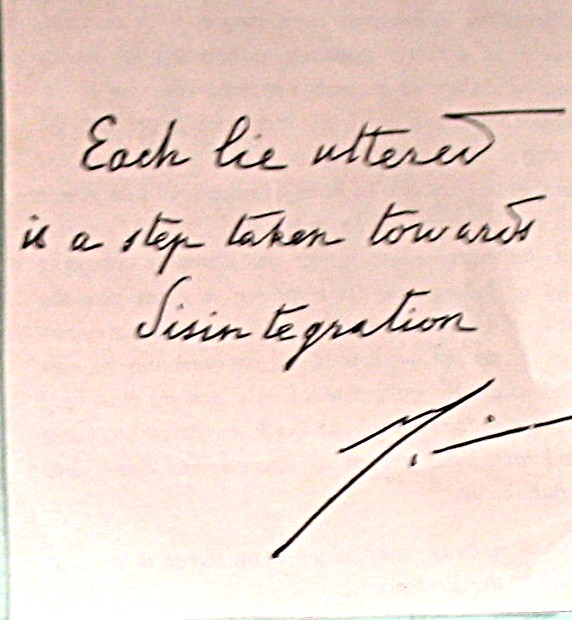 Each lie uttered
is a step taken towards
disintegration